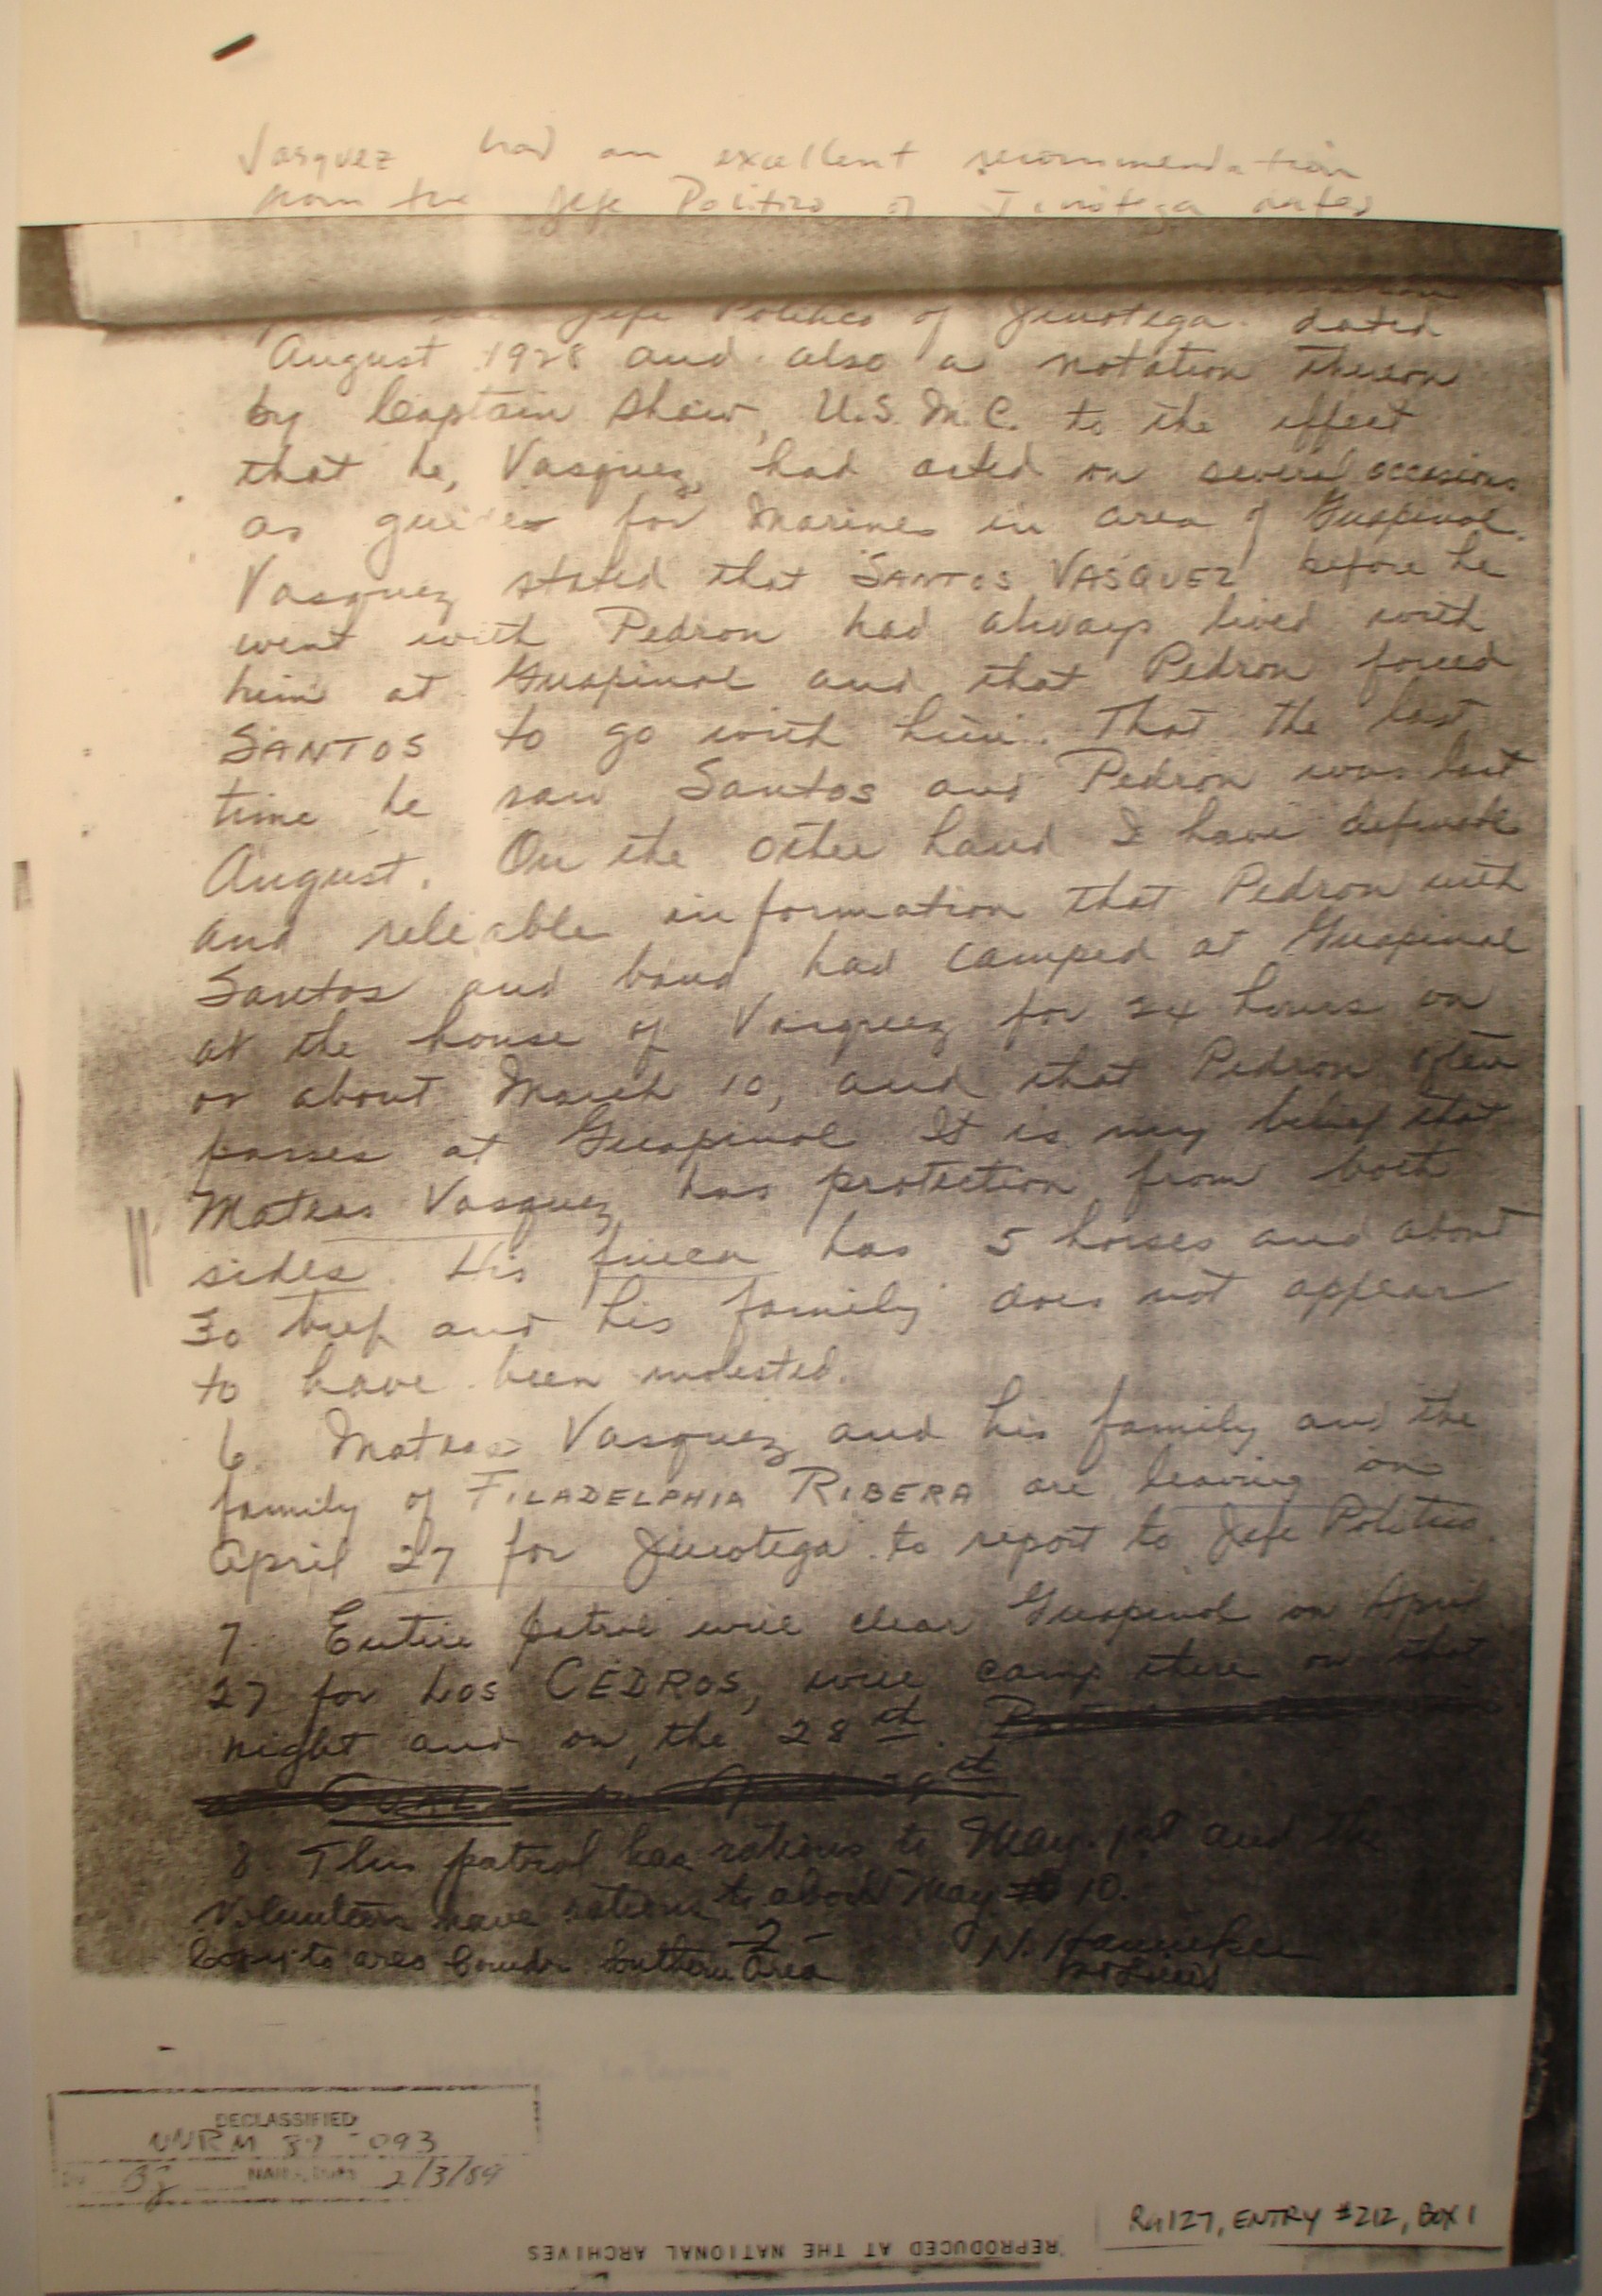 Vasquez had an excellent recommendation
from the Jefe Politico of Jinotega dated
Jefe Politico of Jinotega dated
August 1928 and also a notation thereon
by Captain Shaw, U.S.M.C. to the effect
that he, Vasquez, had acted on several occasions
as guides for Marines in area of Guapinol.
Vasquez stated that SANTOS VASQUEZ before he
went with Pedron had always lived with
him at Guapinol and that Pedron forced
SANTOS to go with him. That the last
time he saw Santos and Pedron was last
August. On the other hand I have definite
and reliable information that Pedron with
Santos and band had camped at Guapinol
at the house of Vasquez for 24 hours on
or about March 10, and that Pedron often
passes at Guapinol It is my belief that
Mateas Vasquez has protection from both
sides. His finca has 5 horses and about
30 beef and his family does not appear
to have been molested.
6. Vasquez and his family and the
family of FILADELPHIA RIBERA are leaving on
April 27 for Jinotega to report to Jefe Politico.
7. Entire patrol will clear Guapinol on April
27 for LOS CEDROS, will camp there on that
night and on the 28th.
8. This patrol has rations to May 1st and the
Volunteers have rations to about May 10.
- 2 -
Copy to area Comdr. Southern Area
H. Hanneken
DECLASSIFIED
NNRM 89-093
By BJ NARA, Date 2/3/89
RG127, ENTRY #212, BOX 1
REPRODUCED AT THE NATIONAL ARCHIVES